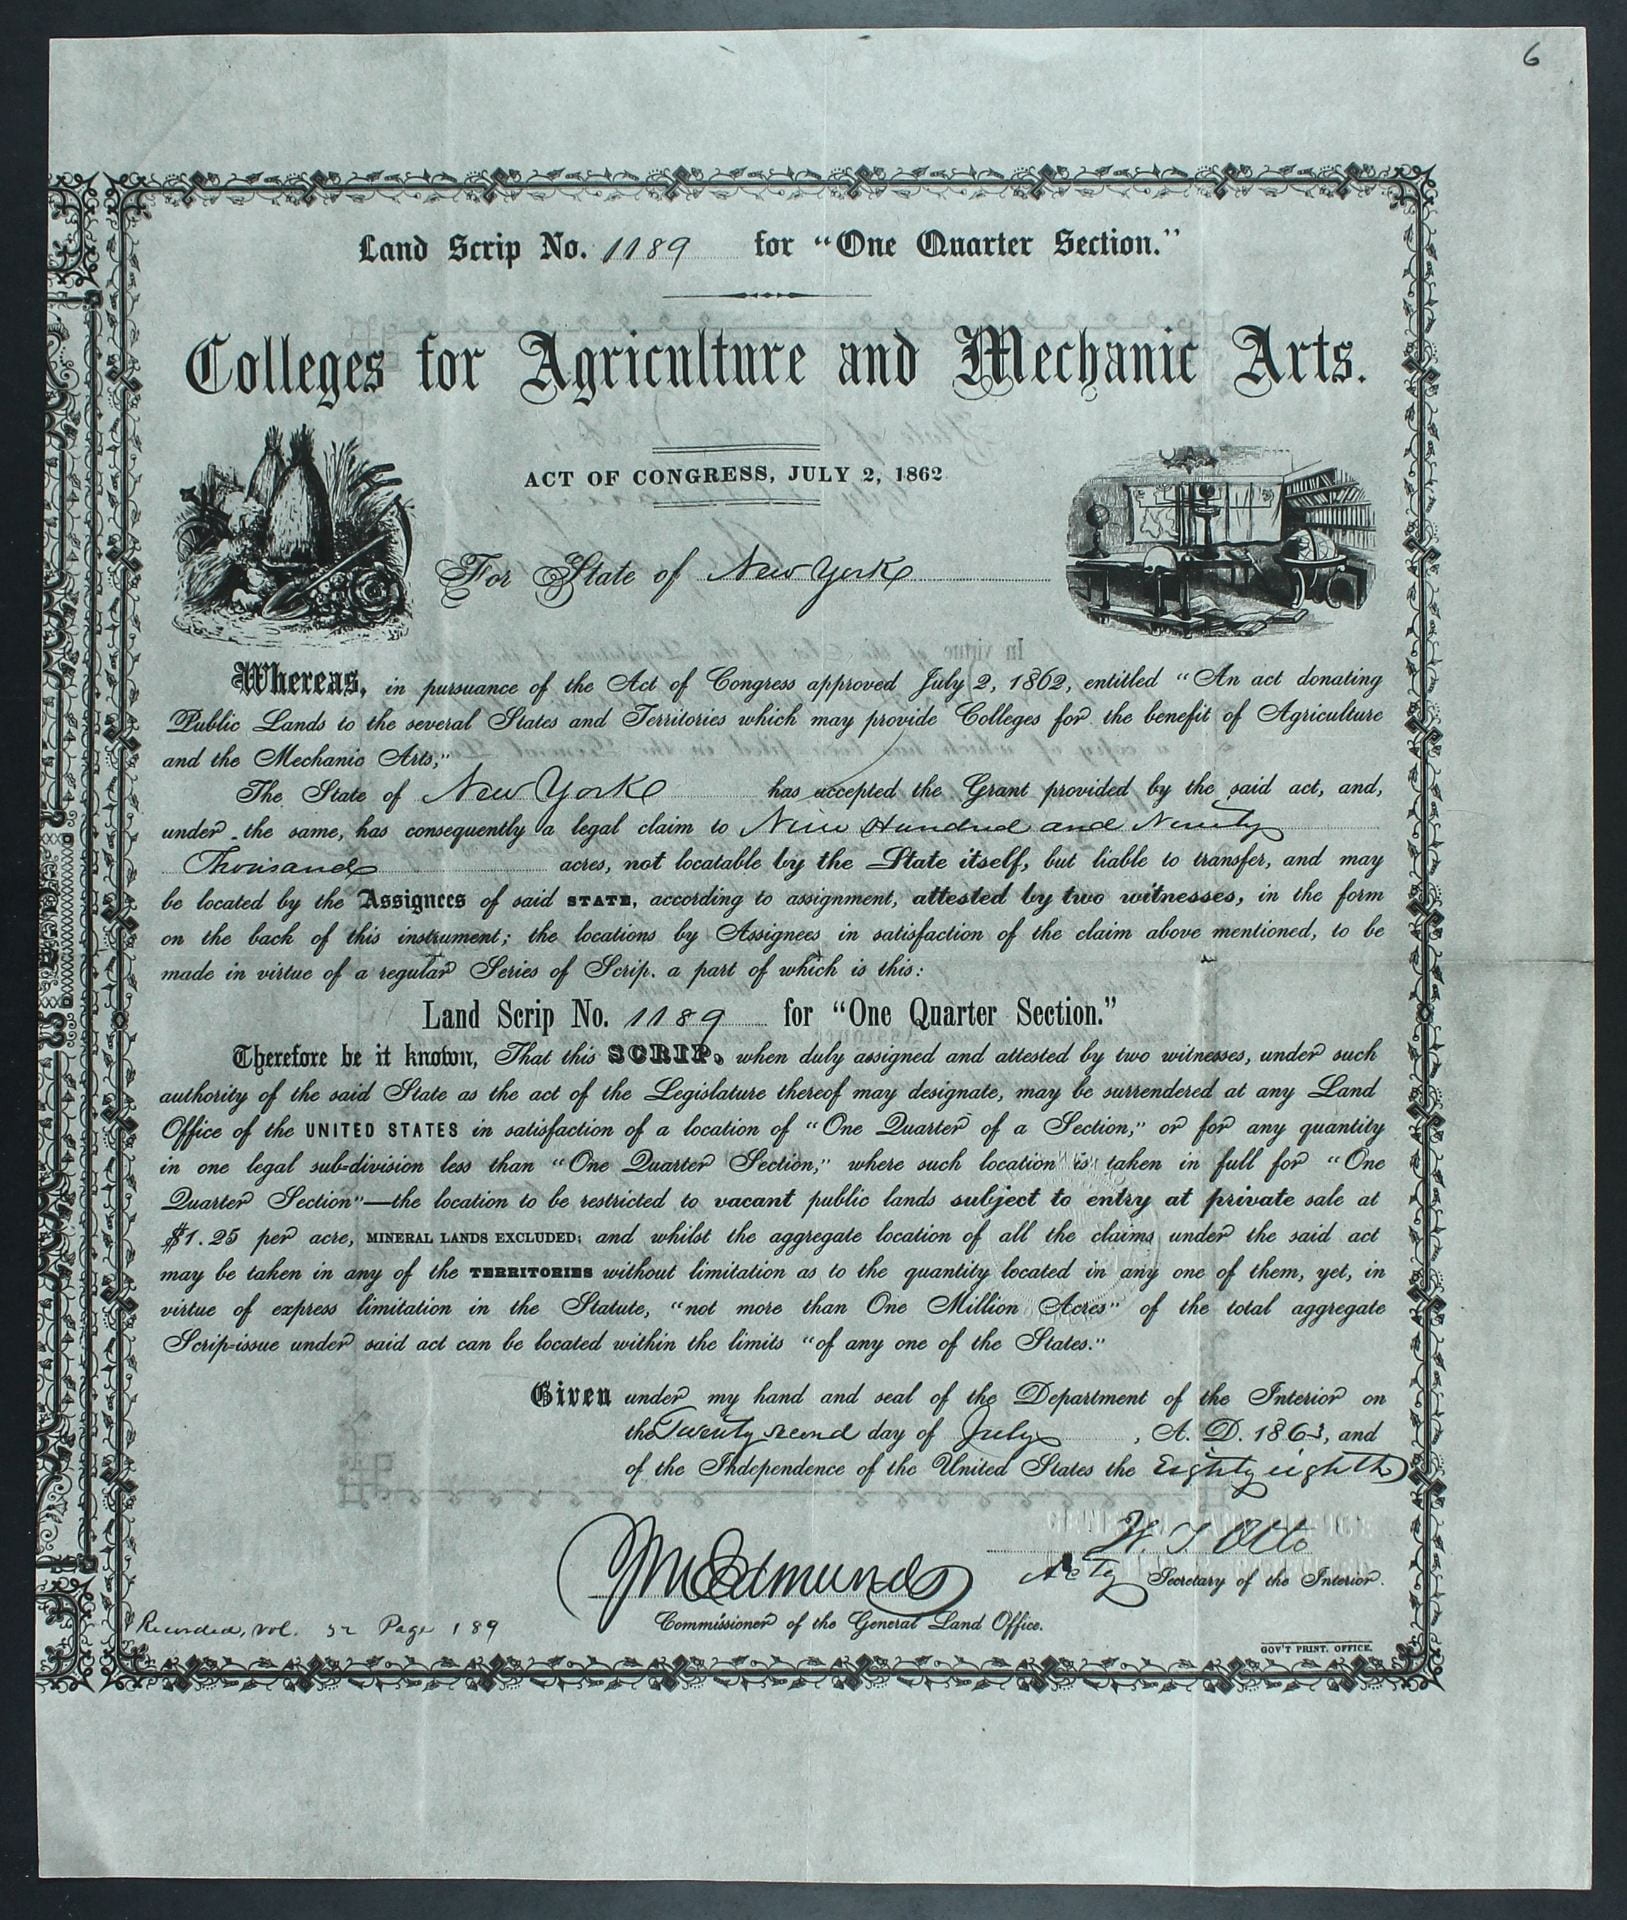 6
Land Scrip No. 1189 for "One Quarter Section."
Colleges for Agriculture and Mechanic Arts.
ACT OF CONGRESS, JULY 2, 1862
For State of New York
Whereas, in pursuance of the Act of Congress approved July 2, 1862, entitled "An act donating
Public Lands to the several States and Territories which may provide Colleges for the benefit of Agriculture
and the Mechanic Arts,"
The State of New York has accepted the Grant provided by the said act, and,
under the same, has consequently a legal claim to Nine Hundred and Ninety
Thousand acres, not locatable by the State itself, but liable to transfer, and may
be located by the Assignees of said STATE, according to assignment, attested by two witnesses, in the form
on the back of this instrument; the locations by Assignees in satisfaction of the claim above mentioned, to be
made in virtue of a regular Series of Scrip. a part of which is this:
Land Scrip No. 1189 for "One Quarter Section."
Therefore be it known, That this SCRIP, when duly assigned and attested by two witnesses, under such
authority of the said State as the act of the Legislature thereof may designate, may be surrendered at any Land
Office of the UNITED STATES in satisfaction of a location of "One Quarter of a Section," or for any quantity
in one legal sub-division less than "One Quarter Section," where such location is taken in full for "One
Quarter Section"—the location to be restricted to vacant public lands subject to entry at private sale at
$1.25 per acre, MINERAL LANDS EXCLUDED; and whilst the aggregate location of all the claims under the said act
may be taken in any of the TERRITORIES without limitation as to the quantity located in any one of them, yet, in
virtue of express limitation in the Statute, "not more than One Million Acres" of the total aggregate
Scrip-issue under said act can be located within the limits "of any one of the States."
Given under my hand and seal of the Department of the Interior on
the Twenty second day of July, A. D. 1863, and
of the Independence of the United States the Eighty eighth
W. T. Otto
Actg Secretary of the Interior.
J M Edmunds
Commissioner of the General Land Office.
Recorded, vol. 52 Page 189
GOV'T PRINT. OFFICE.